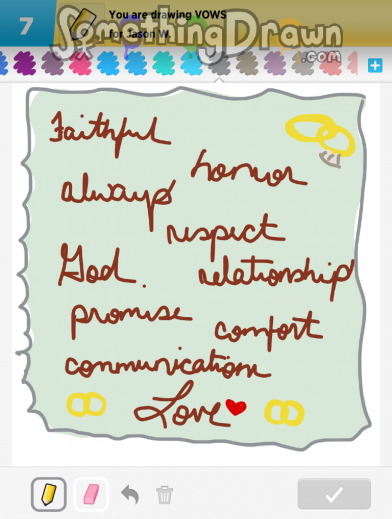 7
You are drawing VOWS
for Jason W.
SomethingDrawn
.com
Faithful
honor
always
respect
God.
relationship
promise
comfort
communication
Love